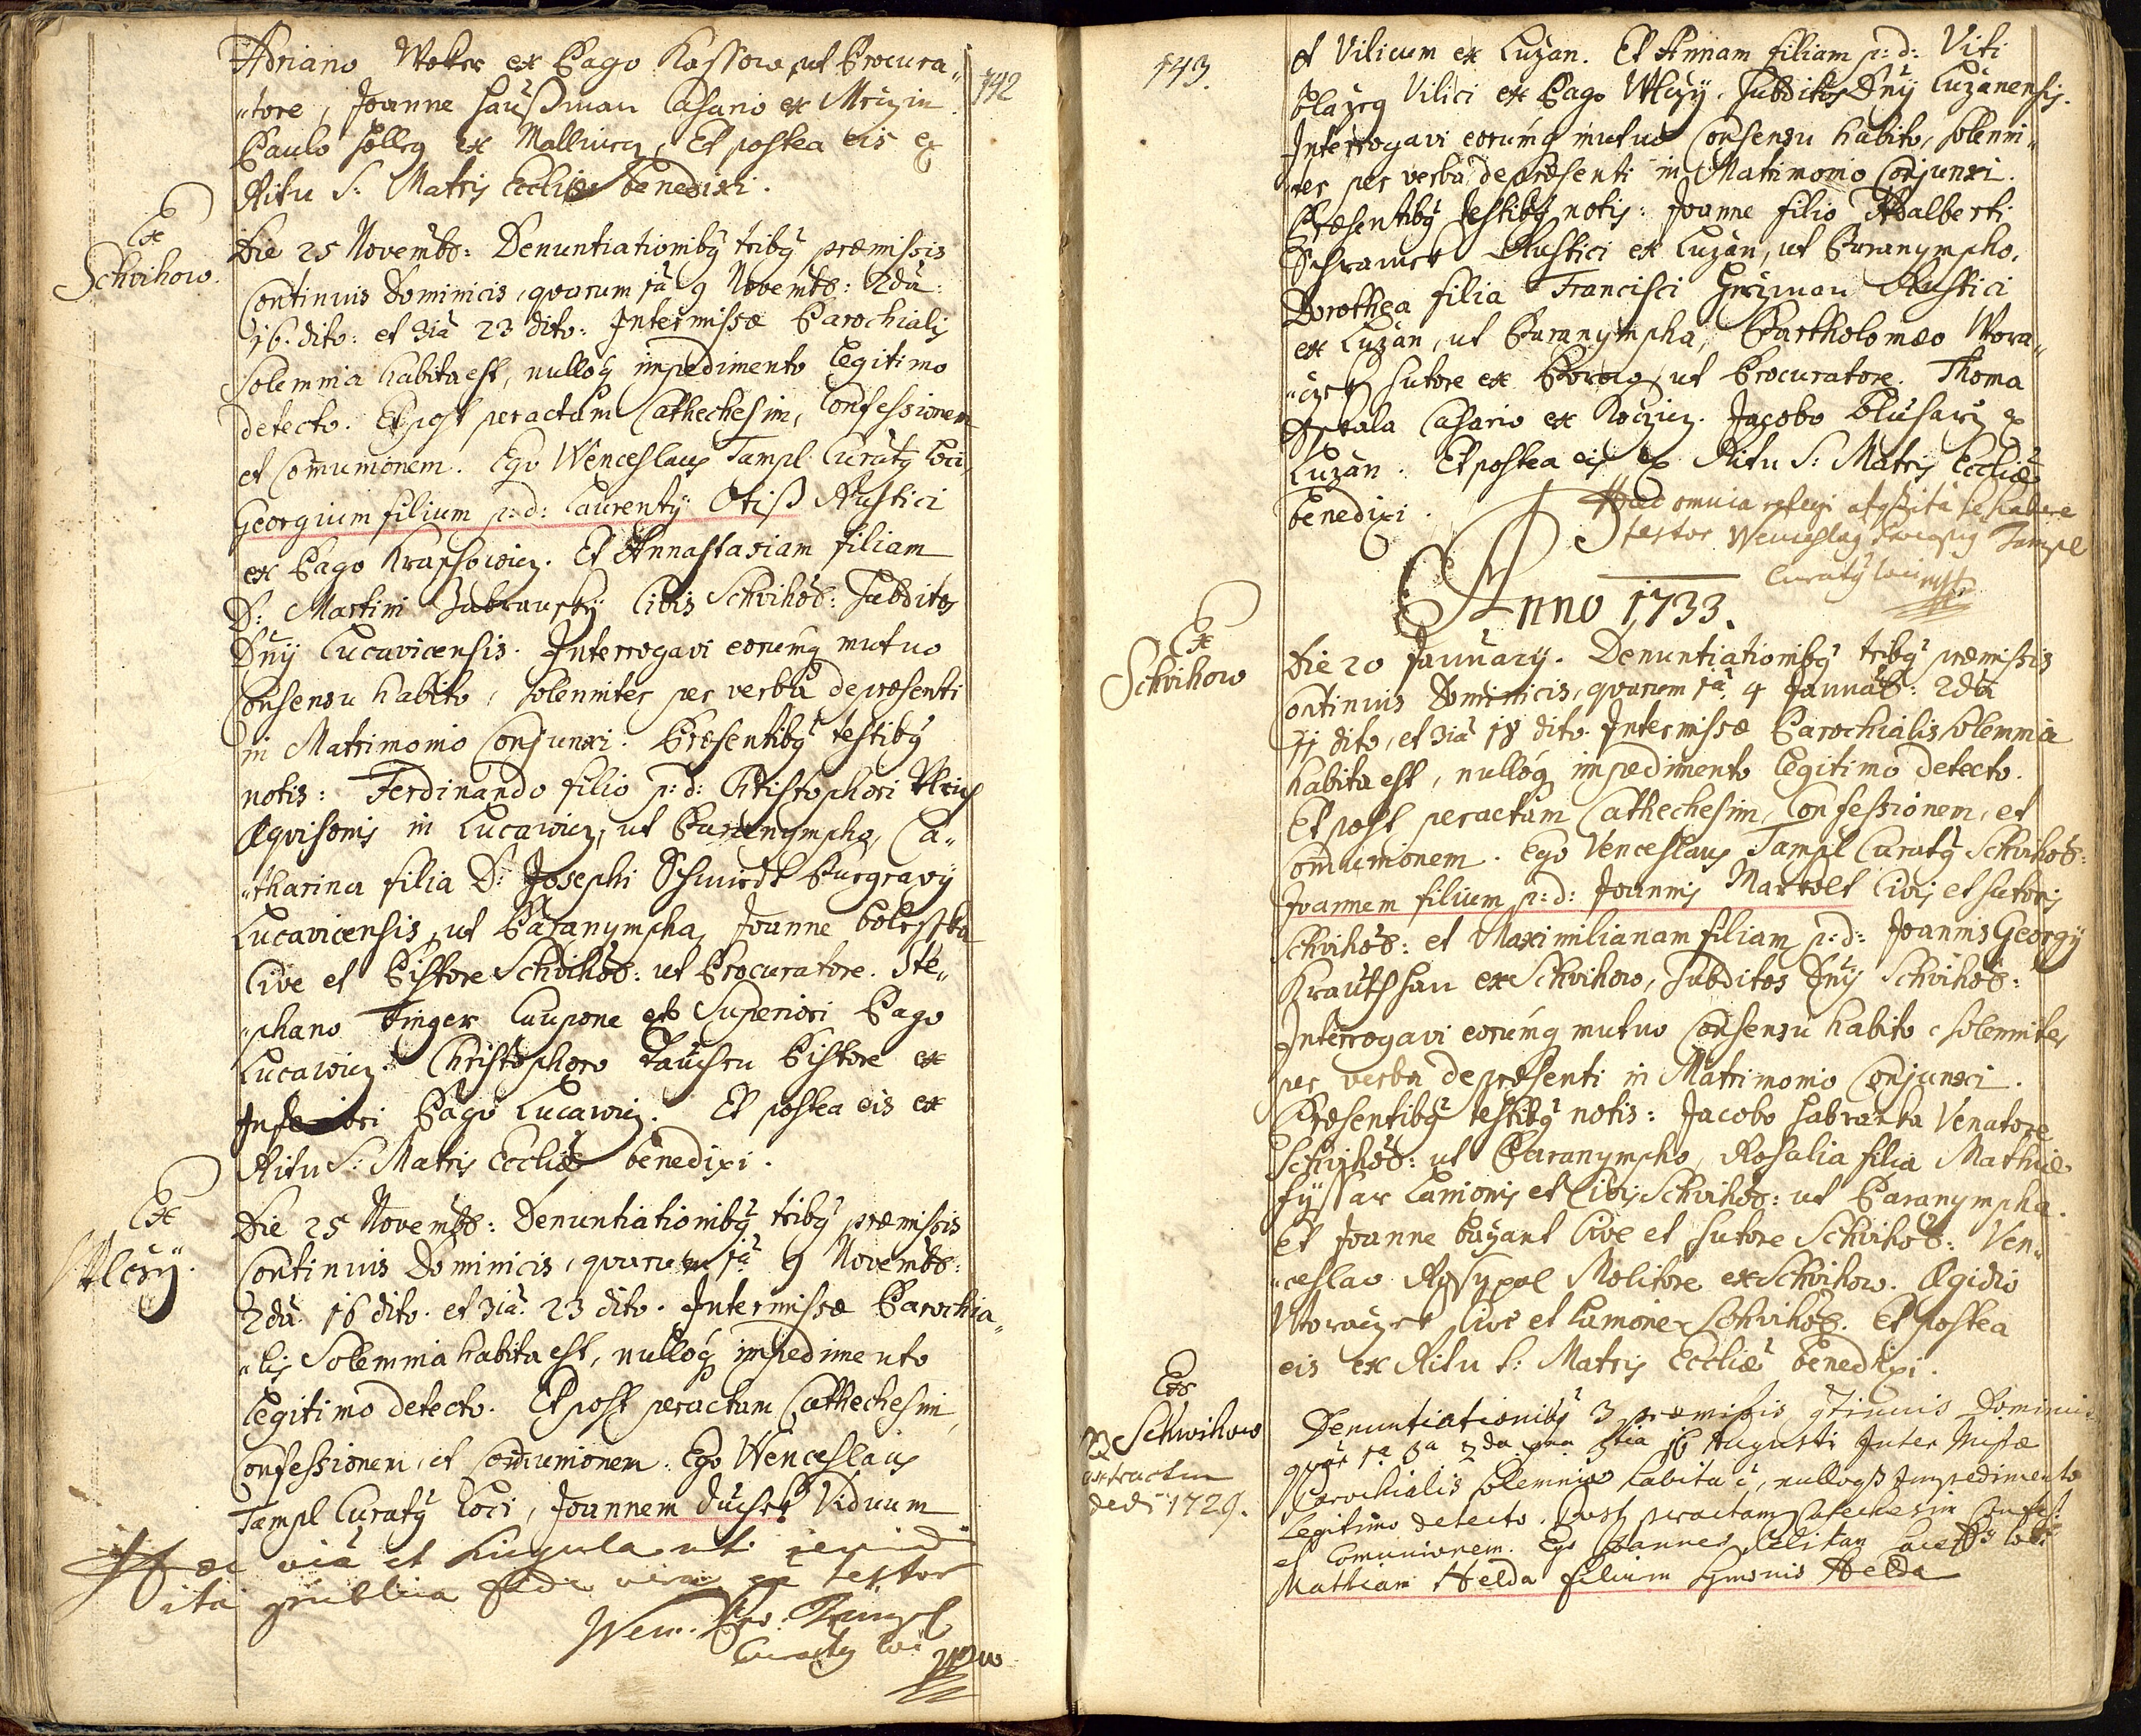 Adriano Woker ex Pago Kassow, ut Procura„
142
„tore, Joanne Haußman Casario ex Mezin
Paulo Holley ex Mallinez, Et postea eis ex
Ritu S: Matris Eccliæ benedixi.
Ex
Schvihow.
Die 25 Novembr: Denuntiationibq tribq præmissis
Continuis Dominicis, quarum 1ã 9 Novembr: 2dã
16. dito: et 3iã 23 dito: Inter missæ Parochialis
Solemnia habita est, nulloq impedimento legitimo
detecto. Et post peractam Cathechesim, Confessionem
et Comunionem. Ego Wenceslaus Tampl Curatq loci,
Georgium filium p: d: Laurentÿ Otiß Rustici
ex Pago Krapsowicz. Et Annastasiam filiam
D: Martini Zubranskÿ Civis Schvihõb: Subditos
Dnÿ Lucavicensis. Interrogavi eorumq mutuo
Consensu habito, solenniter per verba de præsenti
in Matrimonio Conjunxi. Præsentibq testibq
notis: Ferdinando filio p: d: Christophori Ulrich
Æqvisonis in Lucawicz, ut Paranympho, Ca„
„tharina filia D: Josephi Schmidt Purgravÿ
Lucavicensis, ut Paranympha, Joanne Boleska
Cive et Pistore Schvihõb: ut Procuratore. Ste„
„phano Finger Caupone ex Superiori Pago
Lucawicz. Christophoro Tauchen Pistore ex
Inferiori Pago Lucawicz. Et postea eis ex
Ritu S: Matris Eccliæ benedixi.
Ex
Wlczÿ.
Die 25 Novembr: Denuntiationibq tribq præmissis
Continuis Dominicis, quarum 1ã 9 Novembr:
2dã 16 dito. et 3iã 23 dito. Inter missæ Parochia„
„lis Solemnia habita est, nulloq impedimento
legitimo detecto. Et post peractam Cathechesim,
Confessionem, et Comunionem. Ego Wenceslaus
Tampl Curatq Loci, Joannem Duchek Viduum
Hæc et singula uti
ita publica fide testor
Wen: Tampl
Curatq loci mpp
143.
et Vilicum ex Luzan. Et Annam filiam p: d: Viti
Blazeg Vilici ex Pago Wlczÿ. Subditos Dnÿ Luzanensis.
Interrogavi eorumq mutuo Consensu habito, solenni„
„ter per verba de præsenti in Matrimonio Conjunxi.
Præsentibq testibq notis: Joanne filio Adalberti
Schramek Rustici ex Luzan, ut Paranympho,
Dorothea filia Francisci Hezman Rustici
ex Luzan, ut Paranympha, Bartholomæo Wora„
„czek sutore ex Borow ut Procuratore. Thoma
Skala Casario ex Koczin. Jacobo Klusacz ex
Luzan. Et postea eis ex Ritu S: Matris Eccliæ
benedixi.
Hæc omnia relegi atq ita se habere
testor Wenceslaq Tampl
Curatq loci mpp
Anno 1733.
Ex
Schvihow
Die 20 Januarÿ. Denuntiationibq tribq præmissis
Continuis Dominicis, quarum 1ã 4 Januar: 2dã
11 dito, et 3iã 18 dito. Inter missæ Parochialis solemnia
habita est, nulloq impedimento legitimo detecto.
Et post peractam Cathechesim, Confessionem, et
Comunionem. Ego Venceslaus Tampl Curatq Schvihõb:
Joannem filium p: d: Joannis Markolt Civis et sutoris
Schvihõb: et Maximilianam filiam p: d: Joannis Georgÿ
Krauthhan ex Schvihow, Subditos Dnÿ Schvihõb:
Interrogavi eorumq mutuo Consensu habito solenniter
per verba de præsenti in Matrimonio Conjunxi.
Præsentibq testibq notis: Jacobo Habranka Venatore
Schvihõb: ut Paranympho, Rosalia filia Mathiæ
Fÿssar Lanionis et Civis Schvihõb: ut Paranympha.
Et Joanne Bayant Cive et sutore Schvihõb: Ven„
„ceslao Rozsypal Molitore ex Schvihow. Ægidio
Woraczek Cive et Lanione Schvihõb. Et postea
eis ex Ritu S: Matris Eccliæ benedixi.
Ex
Schwihow
extractum
dedi 1729.
Denuntiationibq 3 præmissis gtinuis Dominicis
quar 1ã 2da 3tia 16 Augusti Inter Missæ
Parochialis solemnia habita e, nulloq Impedimento
Legitimo detecto. Post peractam Catechesim Confess
et Comunionem. Ego Joannes loci
Mathiam Helda filium Symonis Helda